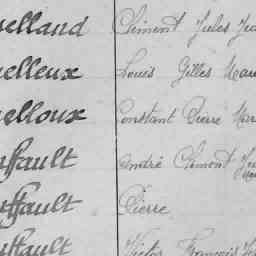 uelland Clément Jules Je
uelleux Louis Gilles Mar
uelloux Constant Pierre Mar
uffault André Clément Ju
uffault Pierre
uffault Victor François Je